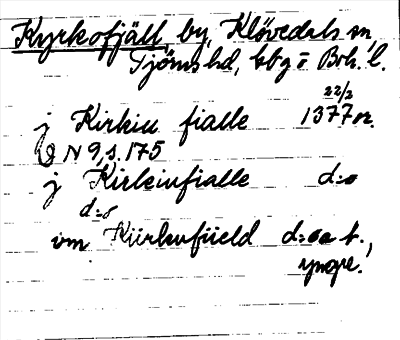 Kyrkofjäll, by, Klövedals sn,
Tjörns hd, Gbg o Boh. l.
22/2
j Kirkiu fialle 1377 or.
N 9, s. 175
j Kirkeinfialle d:o
d:o
om Kiirkufiield d:o a f.,
yngre.